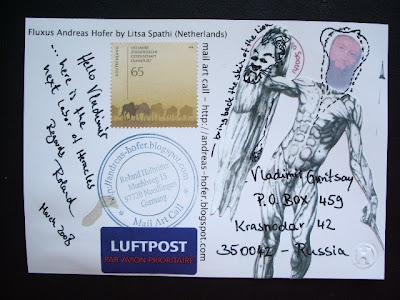 Fluxus Andreas Hofer by Litsa Spathi (Netherlands)
DEUTSCHLAND
65
Hello Vladimir
... here is the
next labor of Heracles
Regards Roland
March 2008
fluxusandreas-hofer.blogspot.com
Roland Halbritter
97720 Nüdlingen
Germany
Mail Art Call
LUFTPOST
PAR AVION PRIORITAIRE
mail art call - http://andreas-hofer.blogspot.com
— bring back the skin of the Lion
Spathi
Vladimir Gvritsay
P.O. BOX 459
Krasnodar 42
350042 - Russia